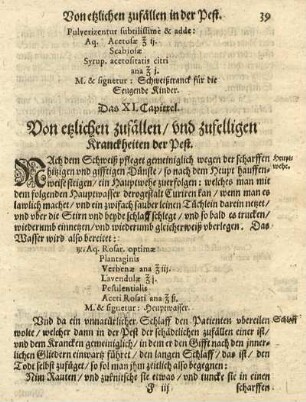 Von etzlichen zufällen in der Pest. 39
Pulverizentur subtilissimè & adde:
Aq. Acetosæ ℥ ij.
Scabiosæ
Syrup. acetositatis citri
ana ℥ j.
M. & signetur: Schweißtranck für die
Seugende Kinder.
Das XI. Capittel.
Von etzlichen zufällen / vnd zufelligen
Kranckheiten der Pest.
NAch dem Schweiß pfleget gemeiniglich wegen der scharffen Heupt-
hitzigen vnd gifftigen Dünste / so nach dem Heupt hauffen- wehe.
weise steigen / ein Hauptwehe zuerfolgen: welches man mit
dem folgenden Hauptwasser dergestalt Curiren kan / wenn man es
lawlich machet / vnd ein zwifach sauber leinen Tüchlein darein netzet /
vnd vber die Stirn vnd beyde schlaff schlegt / vnd so bald es trucken /
wiederumb einneten / vnd wiederumb gleicherweiß vberlegen. Das
Wasser wird also bereitet:
℞: Aq. Rosar. optimæ
Plantaginis
Verbenæ ana ℥ iij.
Lavendulæ ℥ j.
Pestilentialis
Aceti Rosati ana ℥ ß.
M. & signetur: Heuptwasser.
Vnd da ein vnnatürlicher Schlaff den Patienten vbereilen Schlaff
wolte / welcher dann in der Pest der schädlichsten zufällen einer ist /
vnd dem Krancken gemeiniglich / in dem er den Gifft nach den inner-
lichen Gliedern einwarz führet / den langen Schlaff / das ist / den
Todt selbst zufüget / so sol man ihm zeitlich also begegnen:
Nim Rauten / vnd zuknitsche sie etwas / vnd tuncke sie in einen
F iij scharffen